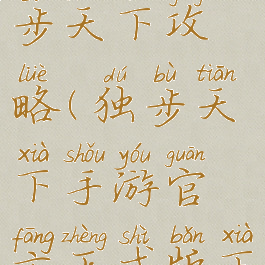 步天下攻
lüè dú bù tiān
略(独步天
xià shǒu yóu guān
下手游官
fāng zhèng shì bǎn xià
方正式版下